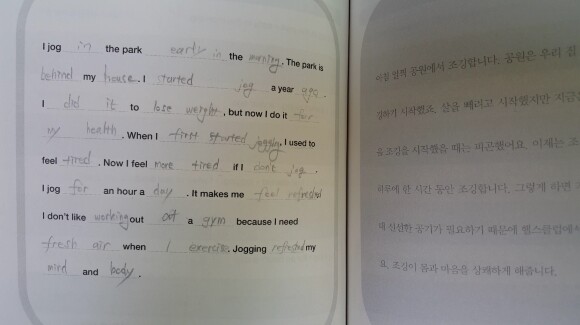 I jog in the park early in the morning. The park is
behind my house. I started jog a year ago.
I did it to lose weight, but now I do it for
my health. When I first started jogging, I used to
feel tired. Now I feel more tired if I don't jog.
I jog for an hour a day. It makes me feel refreshed
I don't like working out at a gym because I need
fresh air when I exercise. Jogging refreshed my
mind and body.
아침 일찍 공원에서 조깅합니다. 공원은 우리 집
깅하기 시작했죠. 살을 빼려고 시작했지만
음 조깅을 시작했을 때는 피곤했어요. 이제는
하루에 한 시간 동안 조깅합니다. 그렇게 하면
에 신선한 공기가 필요하기 때문에 헬스클럽에서
요. 조깅이 몸과 마음을 상쾌하게 해줍니다.